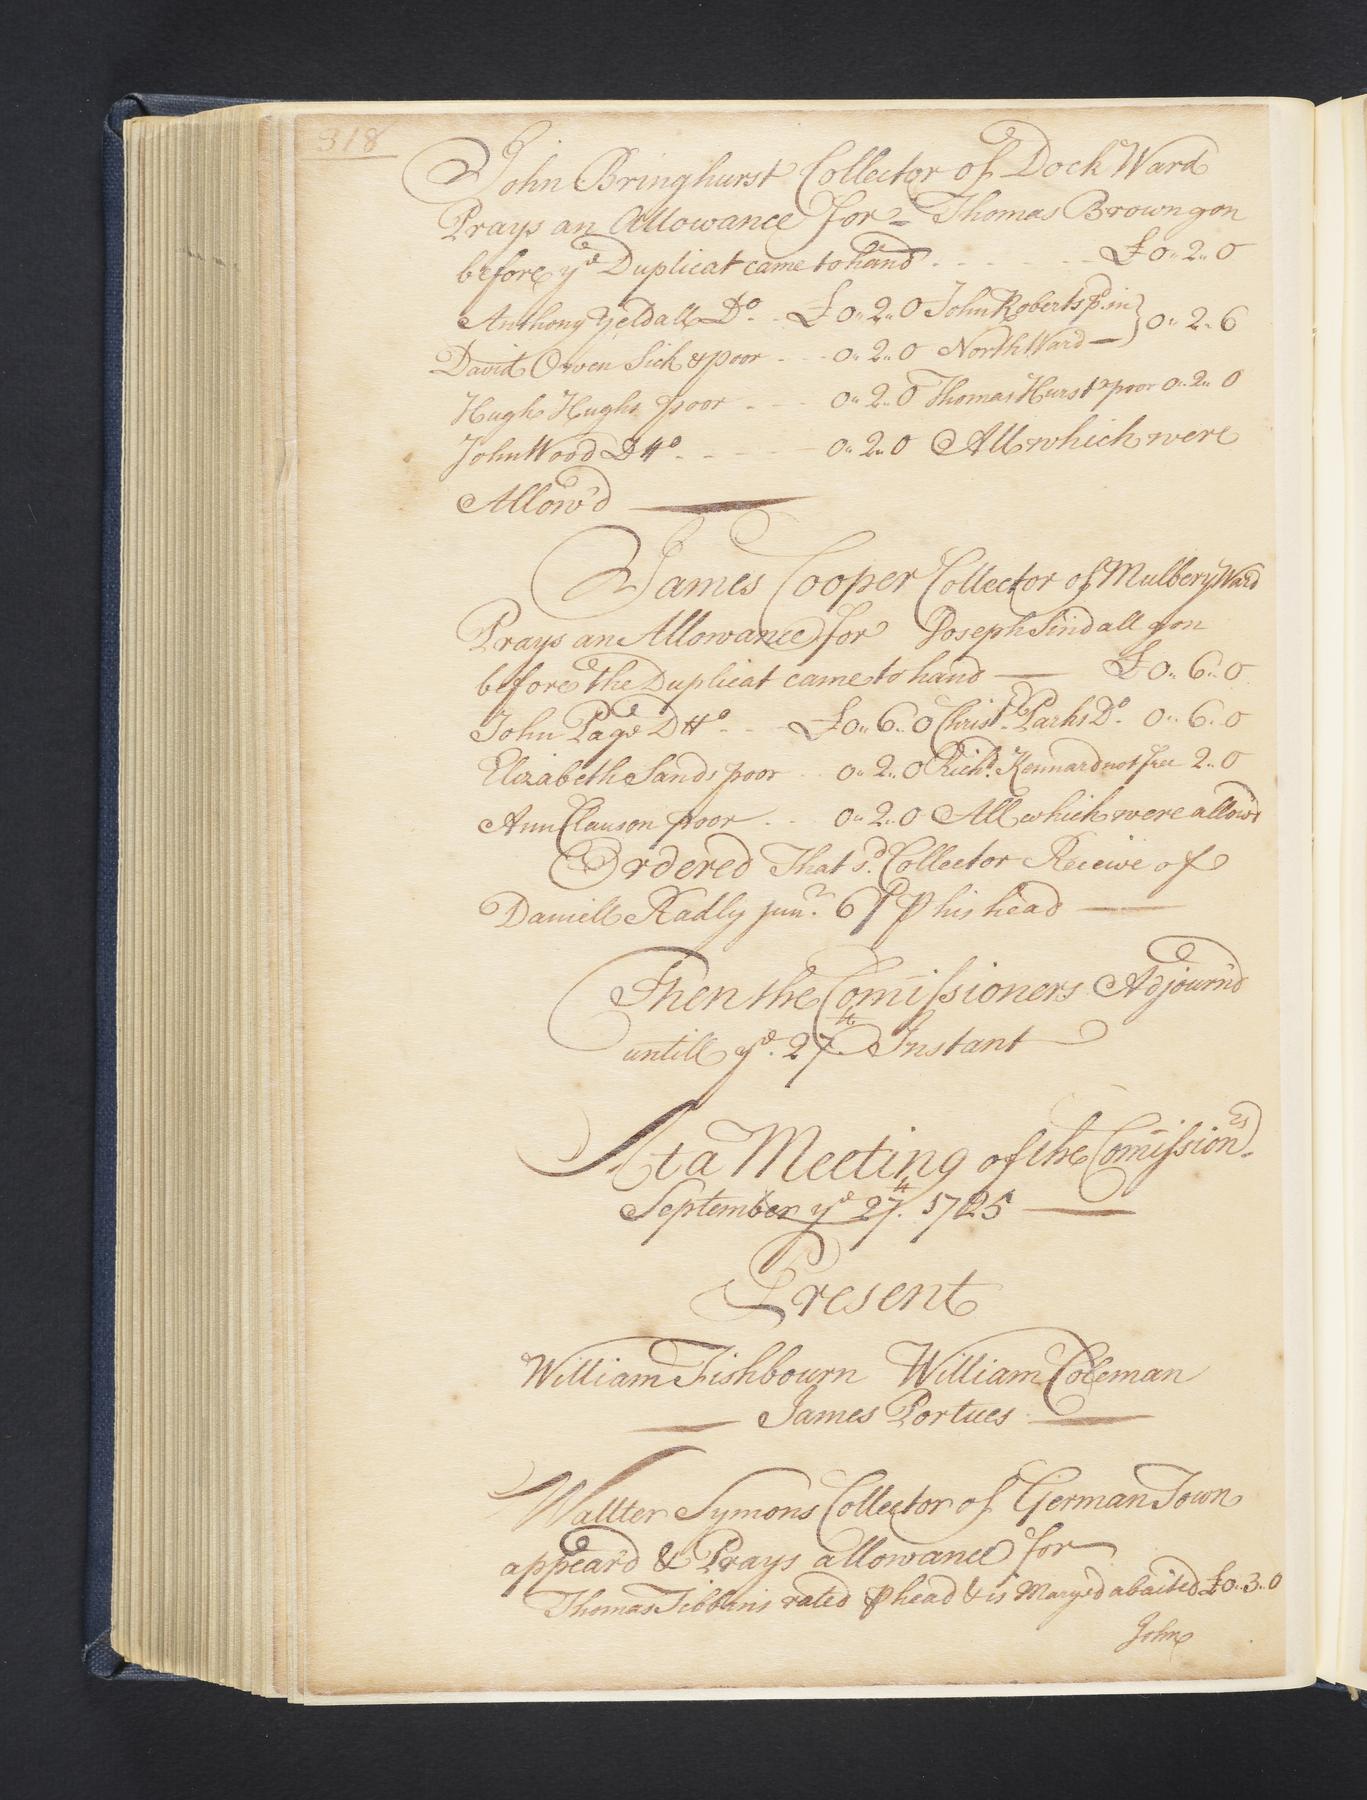 318
John Bringhurst Collector of Dock Ward
Prays an Allowance for = Thomas Brown gon
before ye Duplicat came to hand - - - - - £0"2"0
Anthony Yeldall Do - - £0"2"0 John Roberts pd. in } 0"2"6
David Owen Sick & poor - - - 0"2"0 North Ward —
Hugh Hughs poor - - - 0"2"0 Thomas Hurst poor 0"2"0
John Wood Dtto - - - - - 0"2"0 All which were
Allow'd
James Cooper Collector of Mulbery Ward
Prays an Allowance for Joseph Sindall gon
before the Duplicat came to hand — £0"6"0
John Page Dtto - - - £0"6"0 Christ. Parks Do - 0"6"0
Elizabeth Sands poor - - 0"2"0 Richd. Kennard not free 2"0
Ann Clauson poor - - - 0"2"0 All which were allow'd
Ordered That sd. Collector Receive of
Daniell Radly junr. 6/ P his head —
Then the Comissioners Adjourn'd
untill ye. 27th Instant
At a Meeting of the Comissionrs.
September ye 27th. 1725 —
Present
William Fishbourn William Coleman
— James Portues —
Wallter Symons Collector of German Town
appear'd & Prays allowance for
Thomas Tibbins rated P head & is Mary'd abaited £0"3"0
John